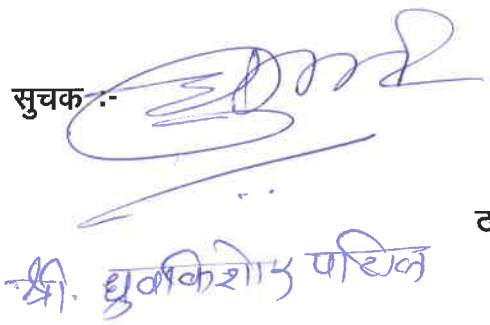 सुचक :-
ठ
श्री. ध्रुवकिशोर पाटिल